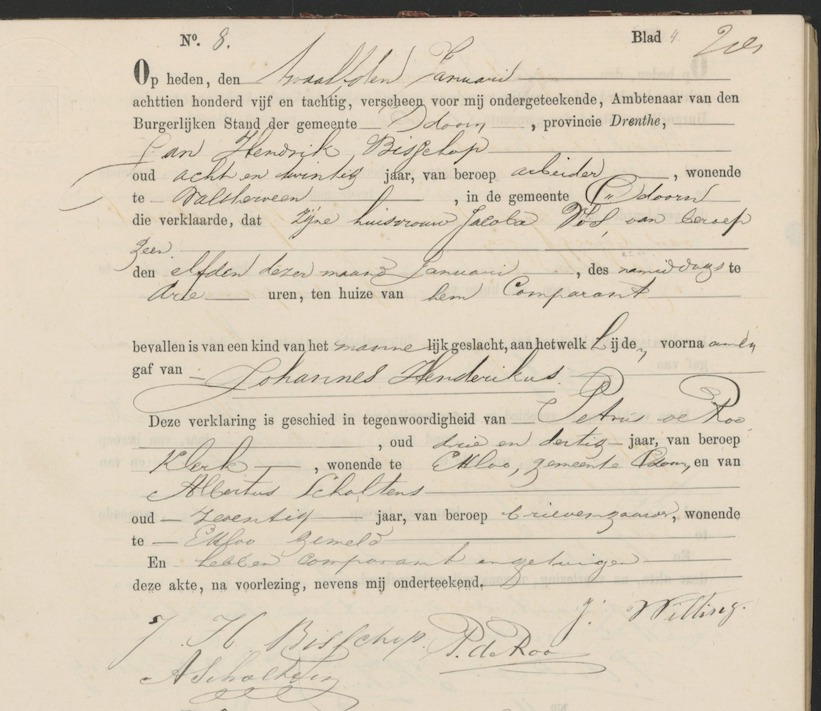 No. 8. Blad 4
Op heden, den twaalfden Januari
achttien honderd vijf en tachtig, verscheen voor mij ondergeteekende, Ambtenaar van den
Burgerlijken Stand der gemeente Odoorn, provincie Drenthe,
Jan Hendrik Bisschop
oud acht en twintig jaar, van beroep arbeider, wonende
te Valtherveen, in de gemeente Odoorn
die verklaarde, dat zijne huisvrouw Jacoba Vos, van beroep
geen
den elfden dezer maand Januari, des namiddags te
drie uren, ten huize van hem Comparant
bevallen is van een kind van het mannelijk geslacht, aan hetwelk hij de voornamen
gaf van Johannes Henderikus.
Deze verklaring is geschied in tegenwoordigheid van Petrus de Roo
, oud drie en dertig jaar, van beroep
Klerk, wonende te Exloo, gemeente Odoorn, en van
Albertus Scholtens
oud zeventig jaar, van beroep brievengaarder, wonende
te Exloo gemeld
En hebben comparant en getuigen
deze akte, na voorlezing, nevens mij onderteekend.
J. Willing.
J. H. Bisschop. P. de Roo
A Scholtens